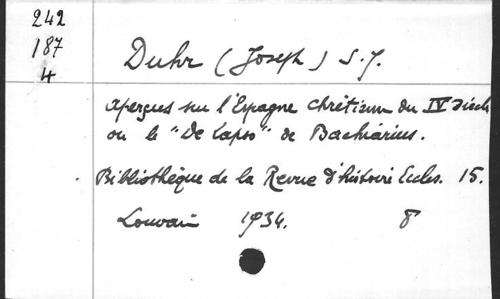 242
187
4
Duhr (Joseph) S.J.
Aperçus sur l'Espagne chrétienne du IV siècle
ou le "De Lapso" de Bachiarius.
Bibliothèque de la Revue d'histoire Eccles. 15.
Louvain 1934. 8